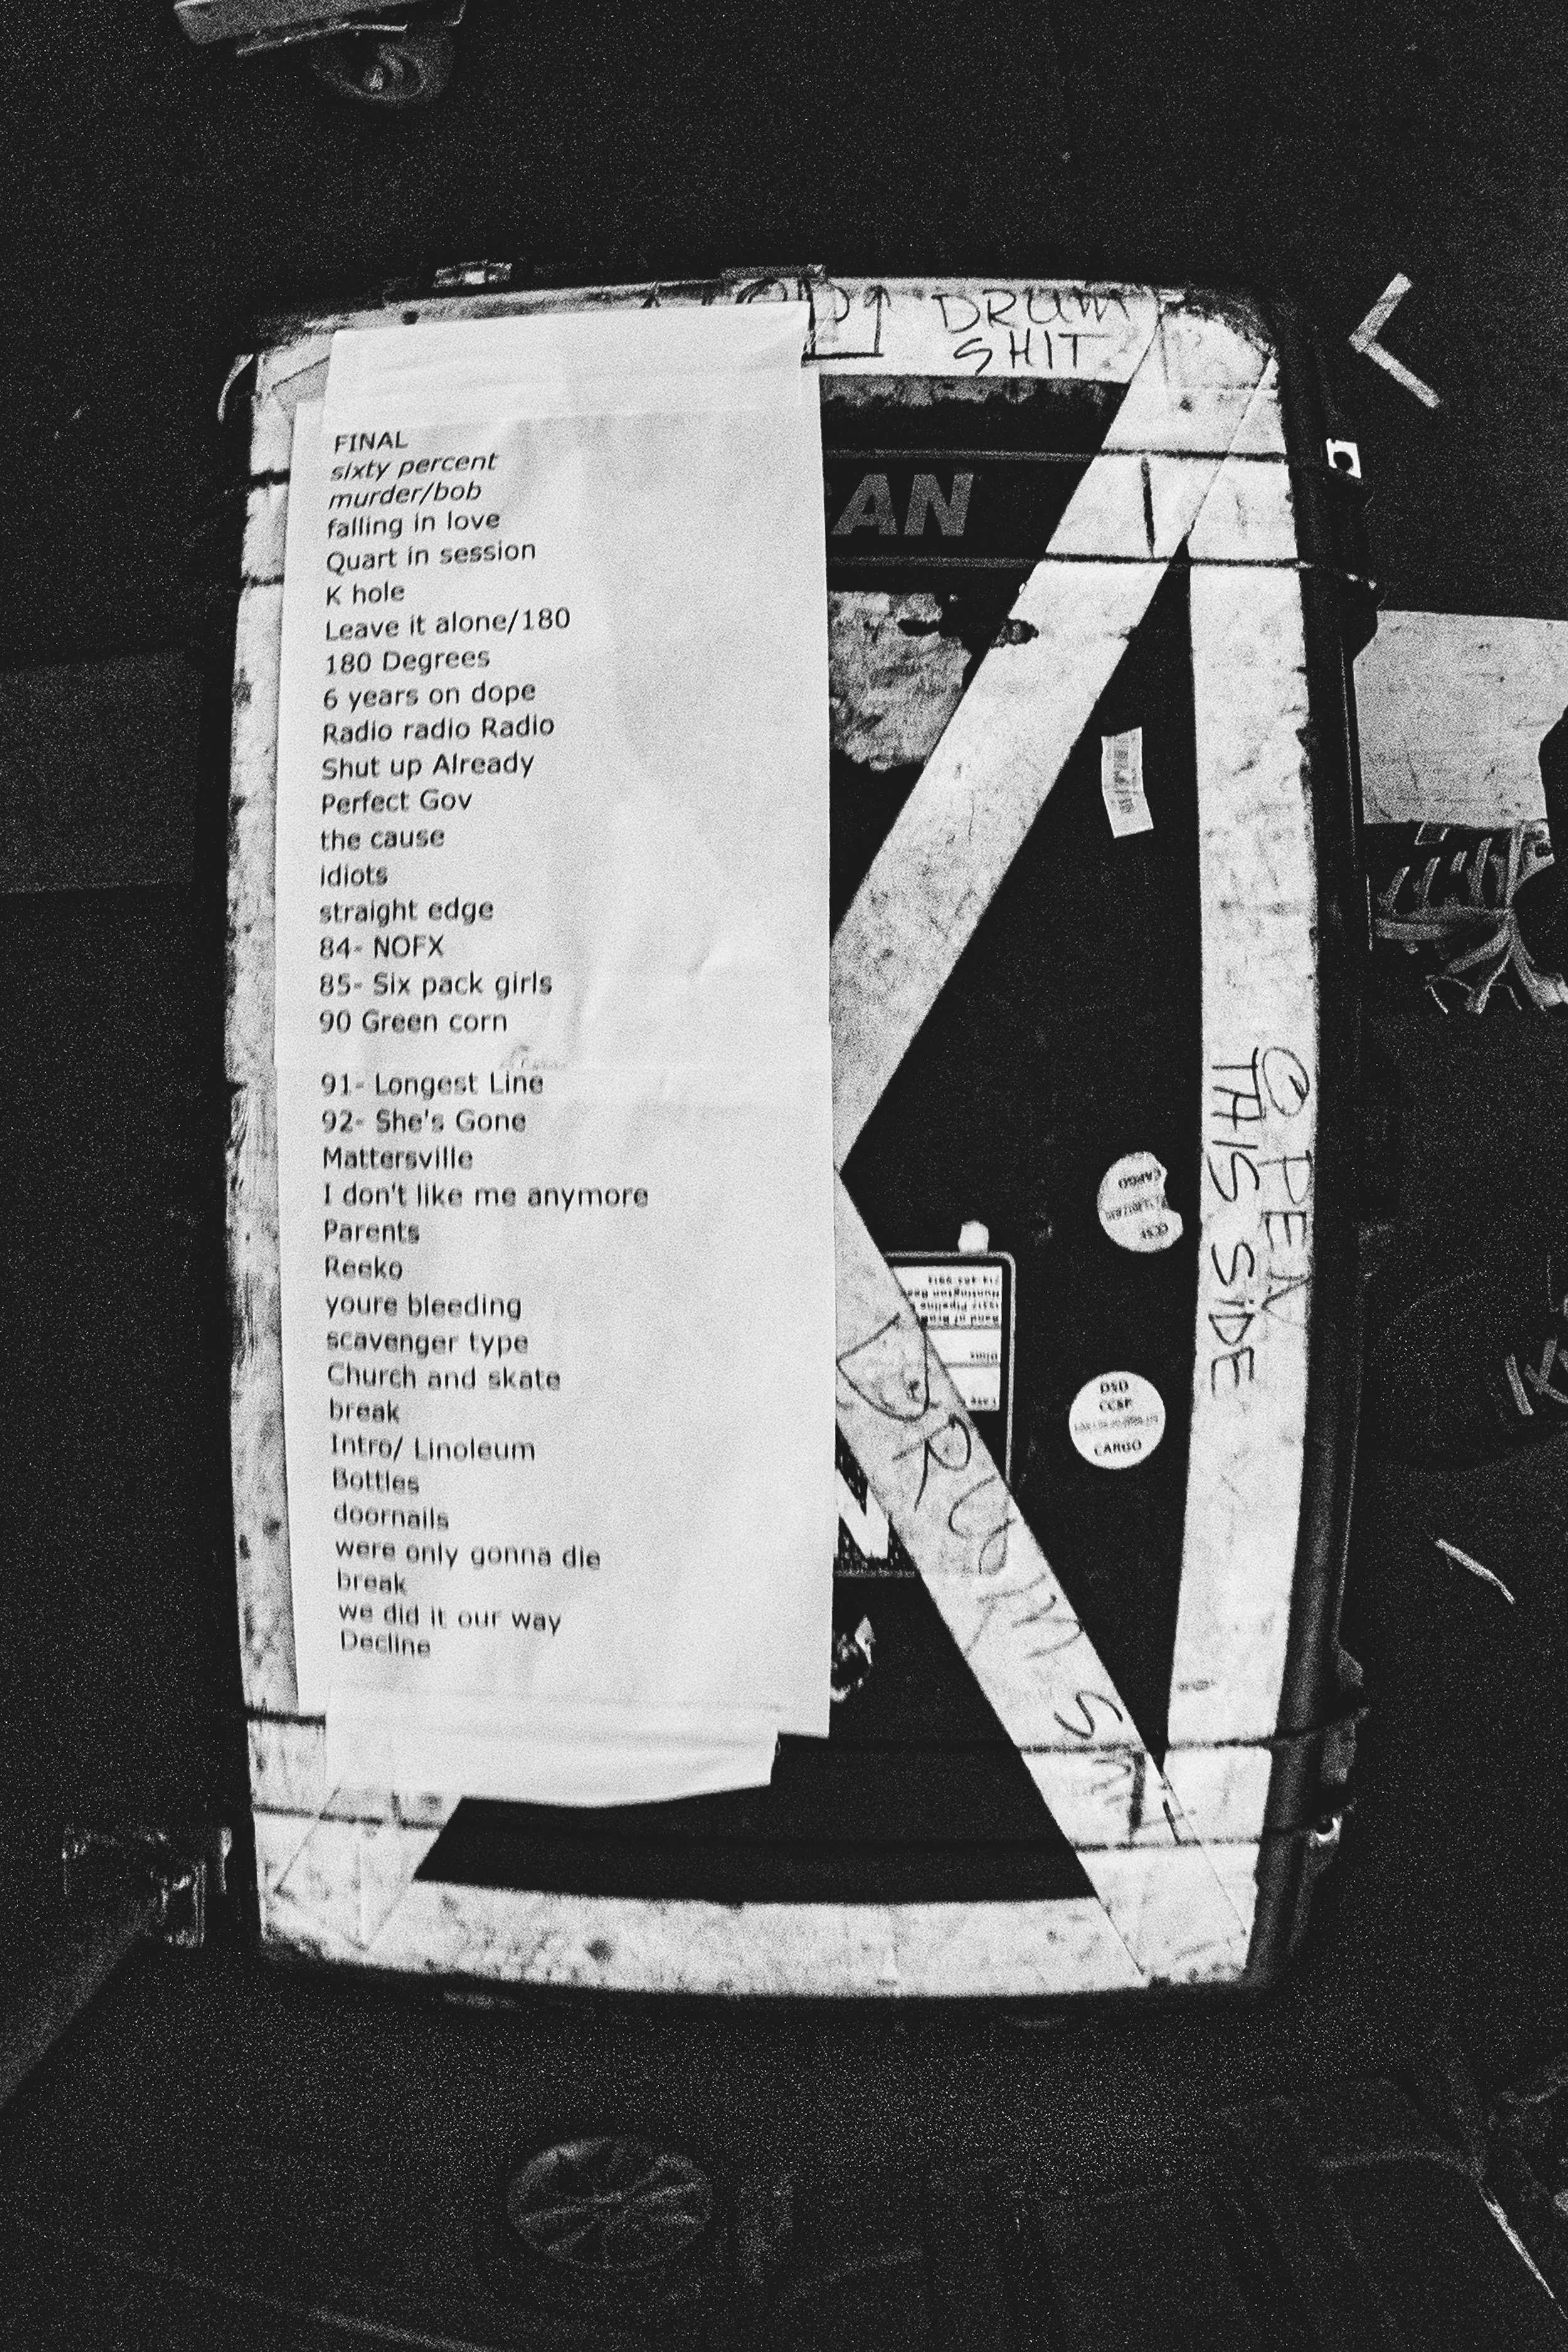 DRUM
SHIT
FINAL
sixty percent
murder/bob
falling in love
Quart in session
K hole
Leave it alone/180
180 Degrees
6 years on dope
Radio radio Radio
Shut up Already
Perfect Gov
the cause
idiots
straight edge
84- NOFX
85- Six pack girls
90 Green corn
91- Longest Line
92- She's Gone
Mattersville
I don't like me anymore
Parents
Reeko
youre bleeding
scavenger type
Church and skate
break
Intro/ Linoleum
Bottles
doornails
were only gonna die
break
we did it our way
Decline
AN
OPEN
THIS SiDE
CARGO
CCSF
DRUM
DSD
CCSF
CARGO